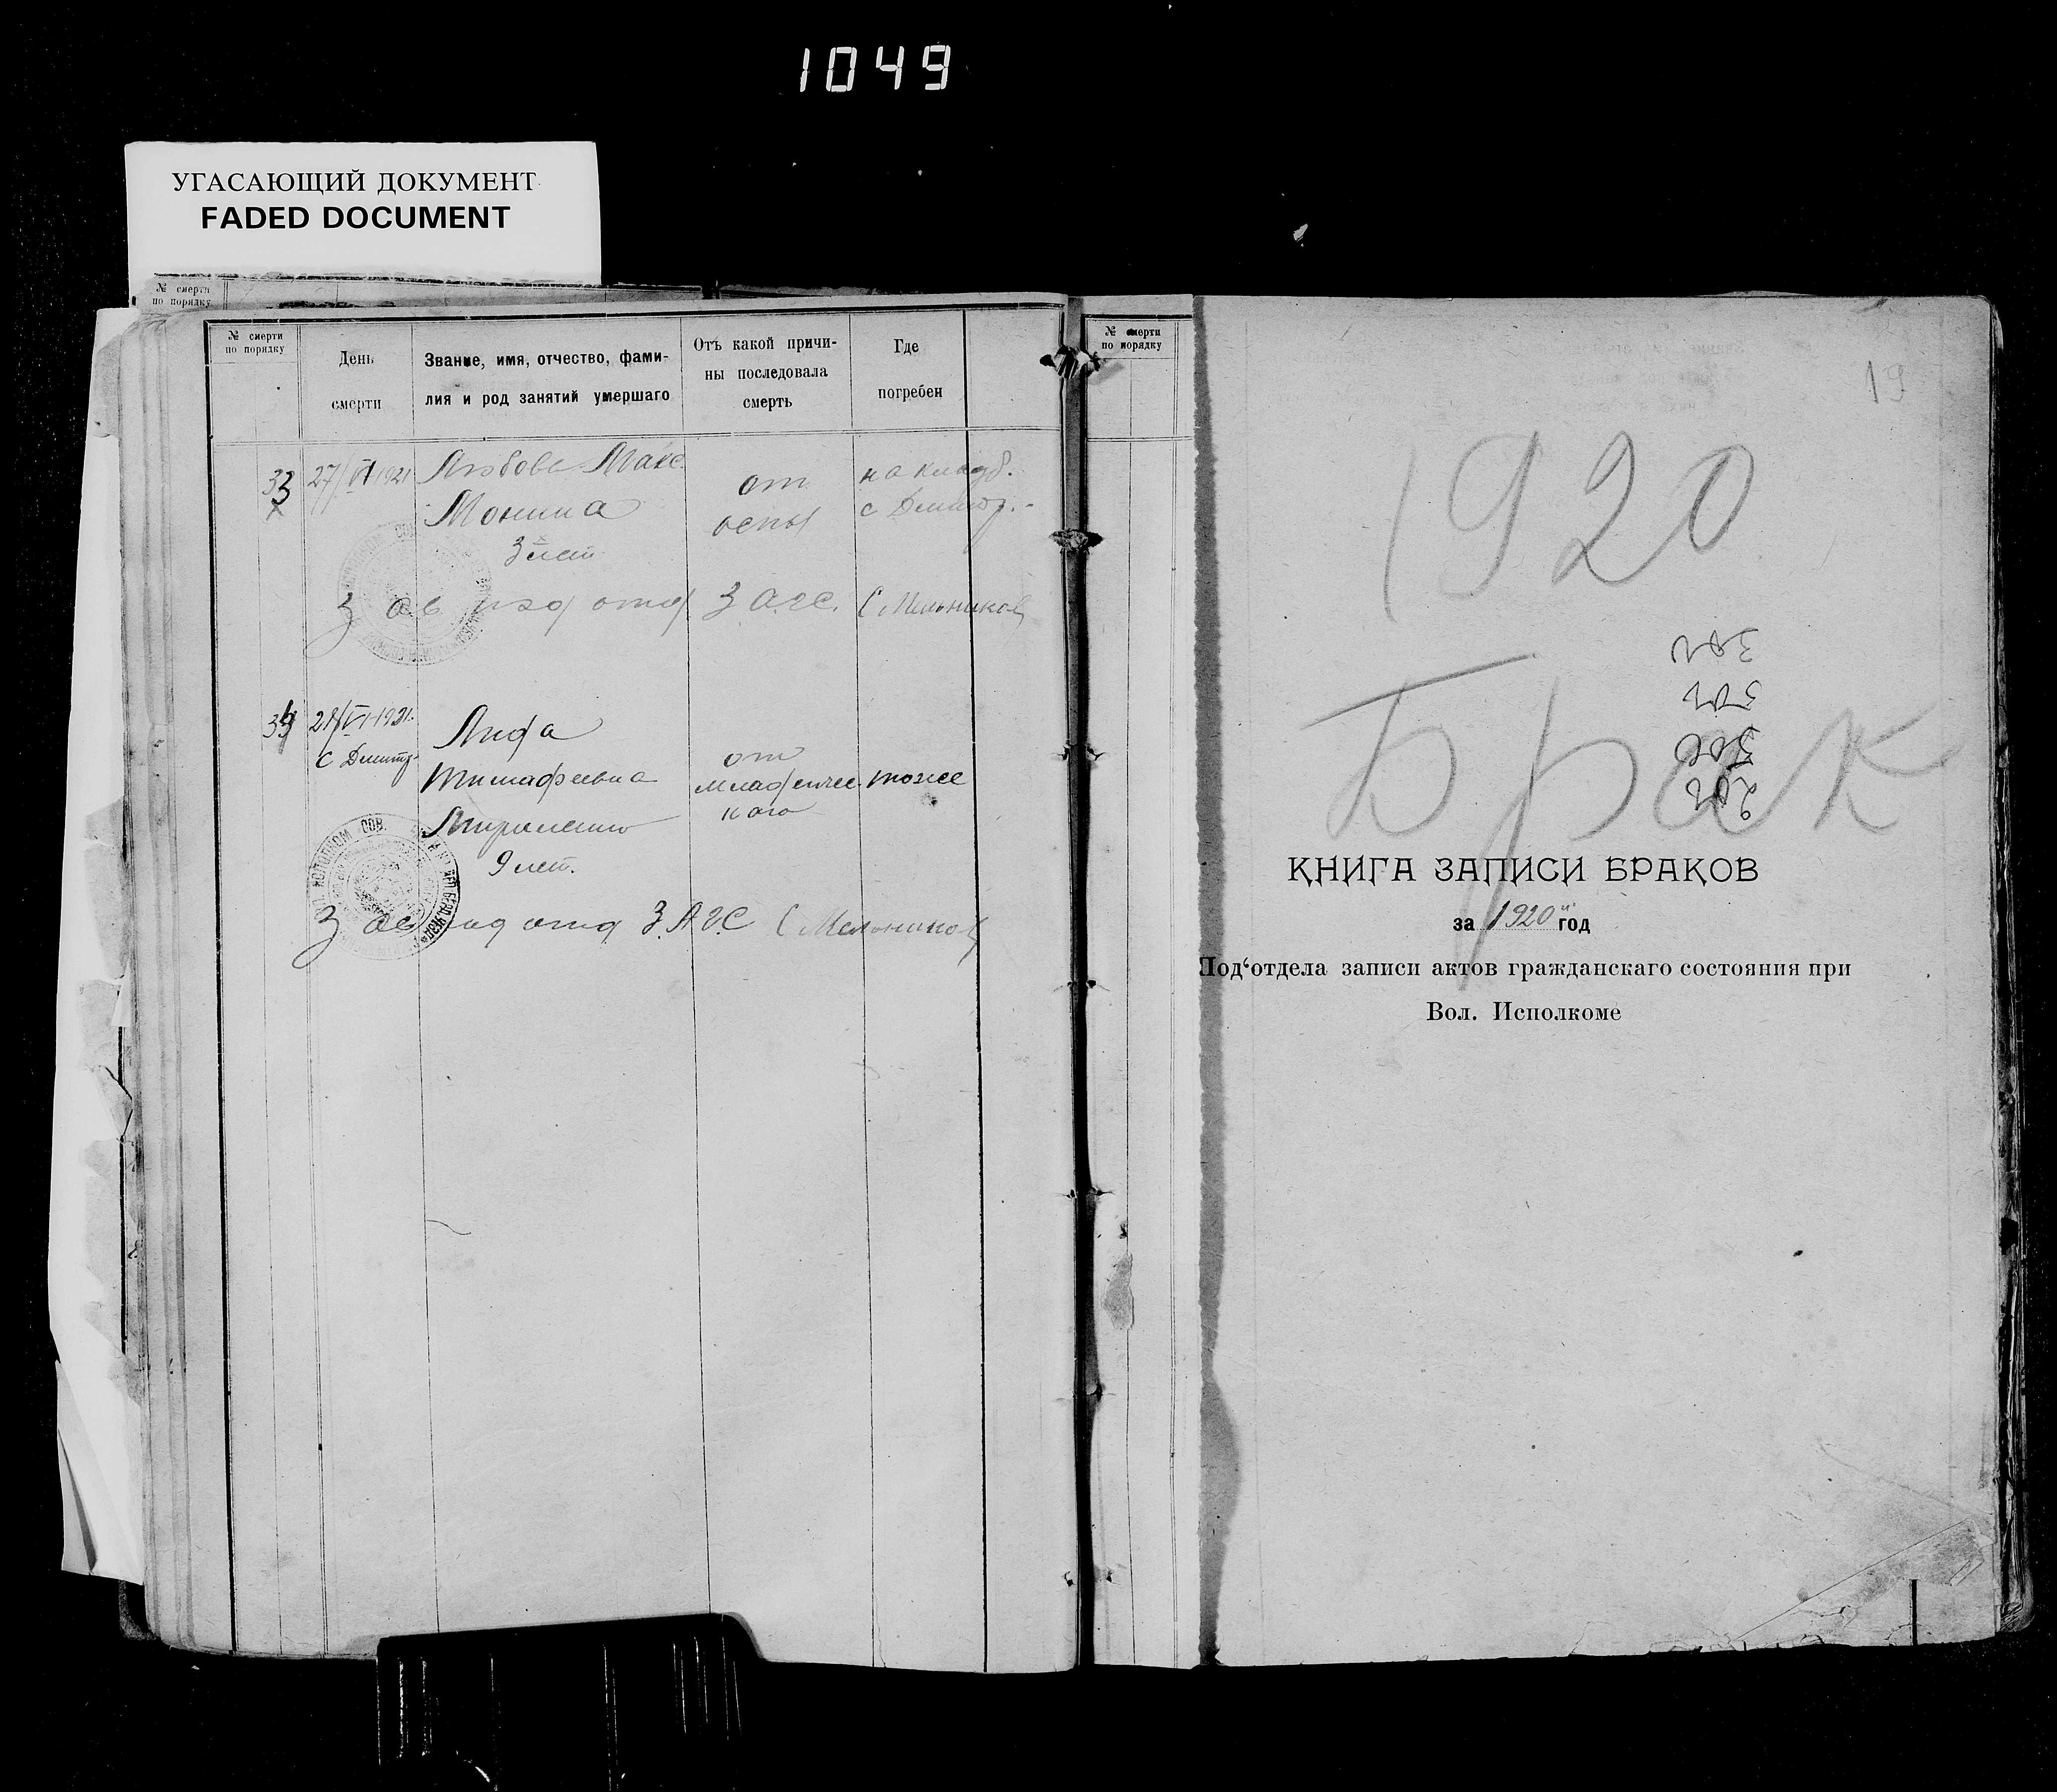 1049
УГАСАЮЩИЙ ДОКУМЕНТ
FADED DOCUMENT
№ смерти
по порядку
№ смерти
по порядку
День
смерти
Звание, имя, отчество, фами-
лия и род занятий умершаго
Отъ какой причи-
ны последовала
смерть
Где
погребен
33
27/VI 1921
Любовь Макс.
Монина
3 лет
от
оспы
на кладб.
с Дмитр.
Зав под отд ЗАГС. Мельников
34
28/VI-1921.
с Дмитр.
Лида
Тимофеевна
9 лет.
от
младенчес
кого
тоже
Зав под отд З.А.Г.С Мельников
№ смерти
по порядку
19
1920
Брак
КНИГА ЗАПИСИ БРАКОВ
за 1920й год
Под‘отдела записи актов гражданскаго состояния при
Вол. Исполкоме